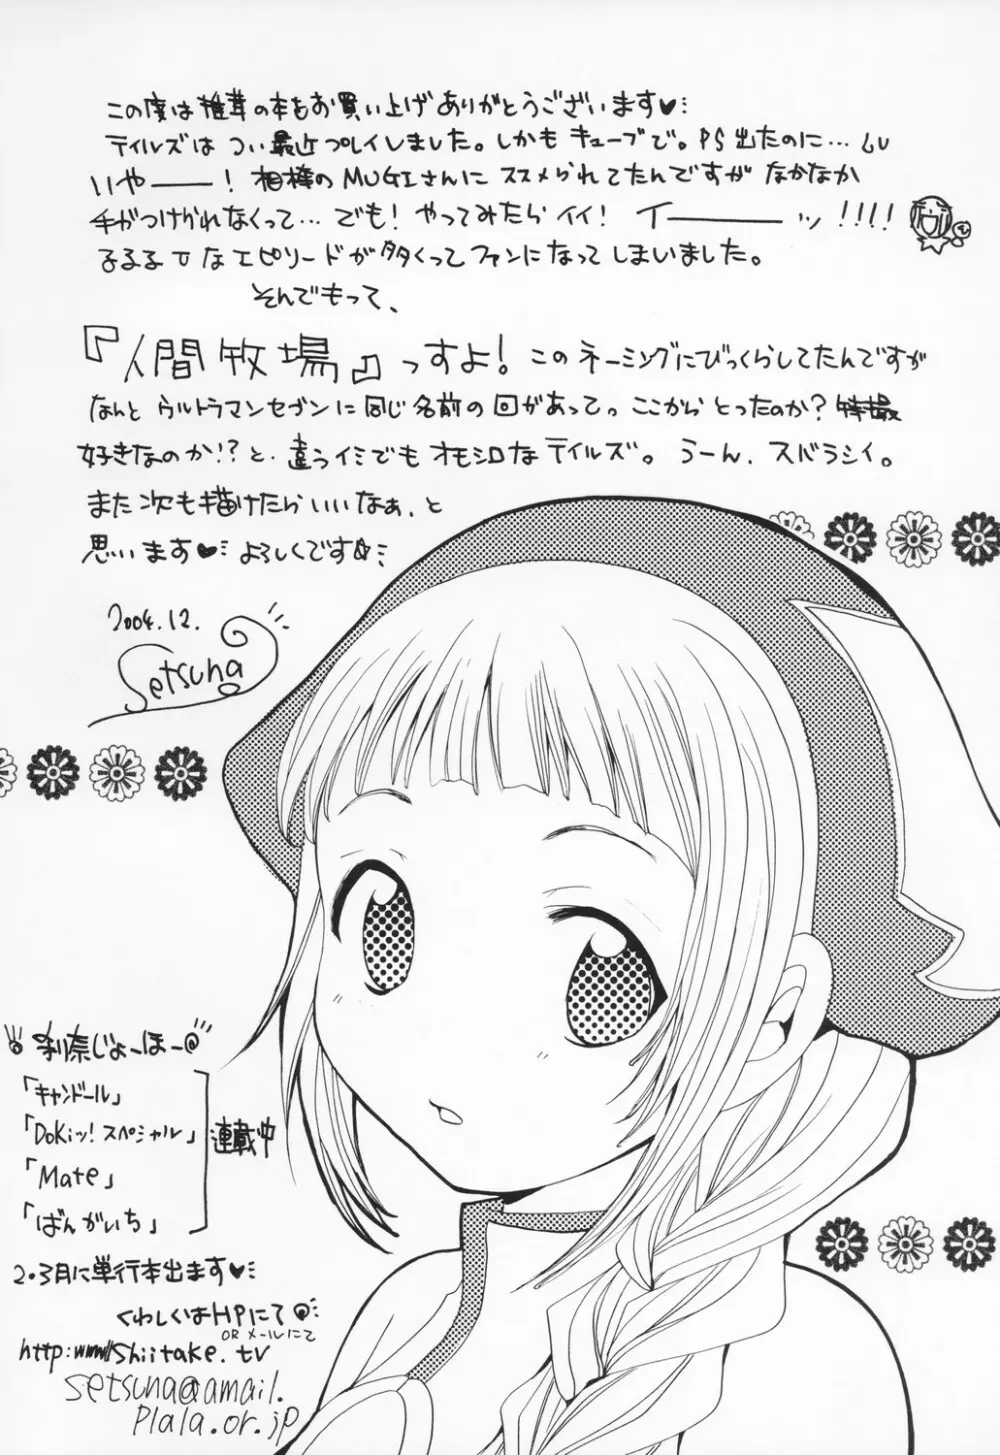 この度は椎茸の本をお買い上げありがとうございます♥
テイルズはつい最近プレイしました。しかもキューブで。PS出たのに…しし
いやー！相棒のMUGIさんにススメられてたんですがなかなか
手がつけられなくって…でも！やってみたらイイ！イーーッ!!!!
るるるTなエピソードが多くってファンになってしまいました。
そんでもって、
『人間牧場』っすよ！このネーミングにびっくらしてたんですが
なんとウルトラマンセブンに同じ名前の回があってっここからとったのか？特撮
好きなのか!?と、違うイミでもオモシロなテイルズ。うーん、スバラシイ。
また次も描けたらいいなぁ、と
思います♥よろしくです
2004.12.
Setsuna
刹奈じょーほー
「キャンドール」
「DoKiッ!スペシャル」
「Mate」
「ばんがいち」
連載中
2・3月に単行本出ます♥
くわしくはHPにて
ORメールにて
http:www/shiitake.tv
setsuna@amail.
plala.or.jp